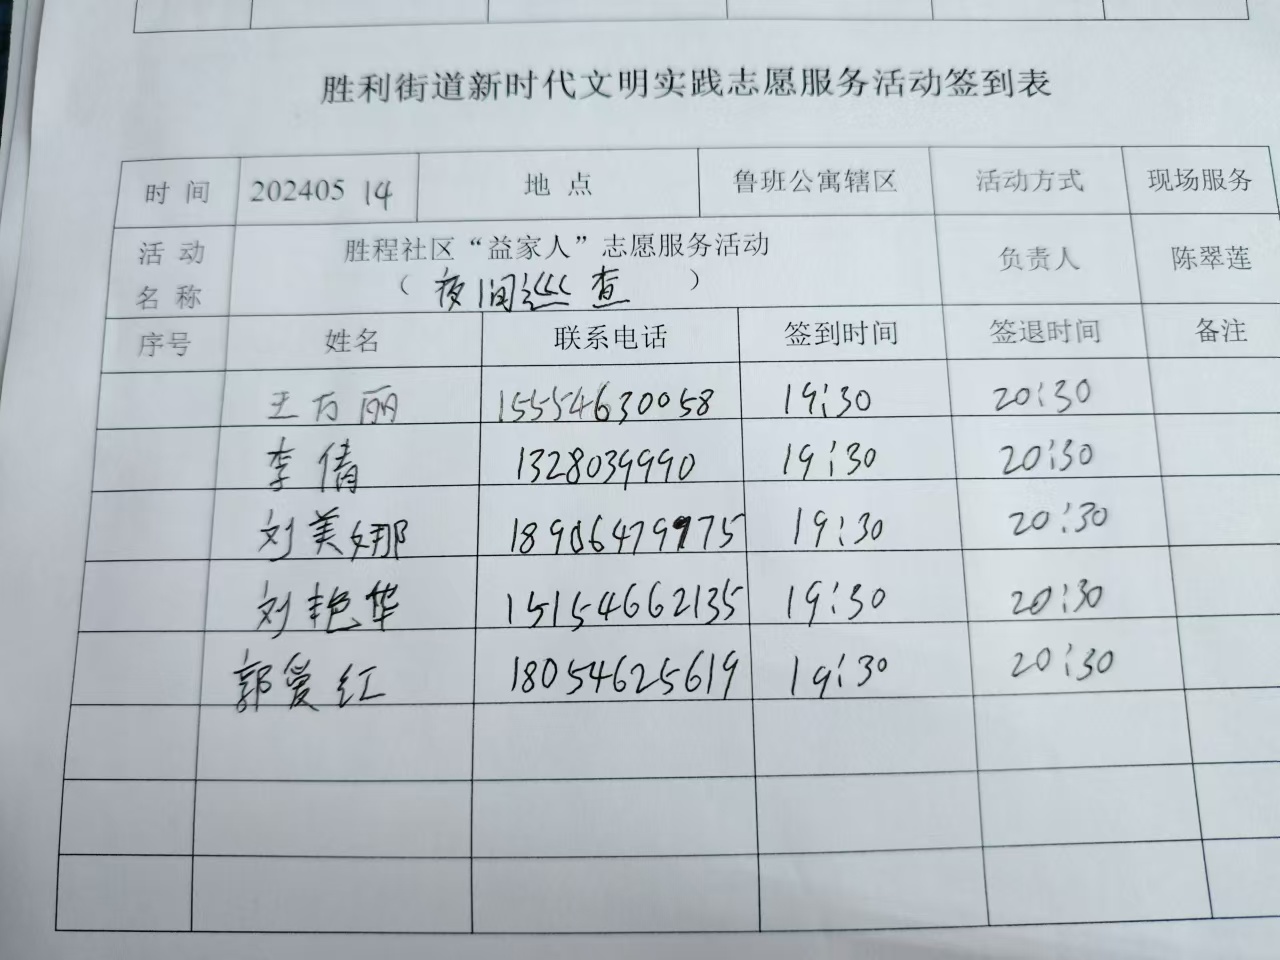 胜利街道新时代文明实践志愿服务活动签到表
时 间 202405 14 地 点 鲁班公寓辖区 活动方式 现场服务
活 动 名 称 胜程社区“益家人”志愿服务活动 负责人 陈翠莲
（ 夜间巡查 ）
序号 姓名 联系电话 签到时间 签退时间 备注
王万丽 15554630058 19:30 20:30
李倩 1328039990 19:30 20:30
刘美娜 18906479975 19:30 20:30
刘艳华 15154662135 19:30 20:30
郭爱红 18054625619 19:30 20:30